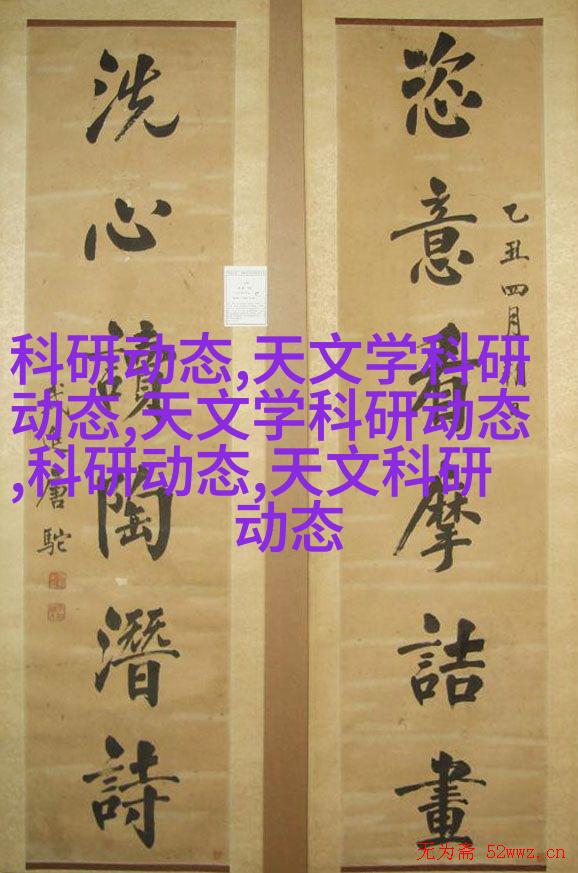 恣意看摩詰畫
乙丑四月
洗心讀陶潛詩
武進唐駝
科研动态,天文学科研
动态,天文学科研动态
,科研动态,天文科研
动态
无为斋 52wwz.cn